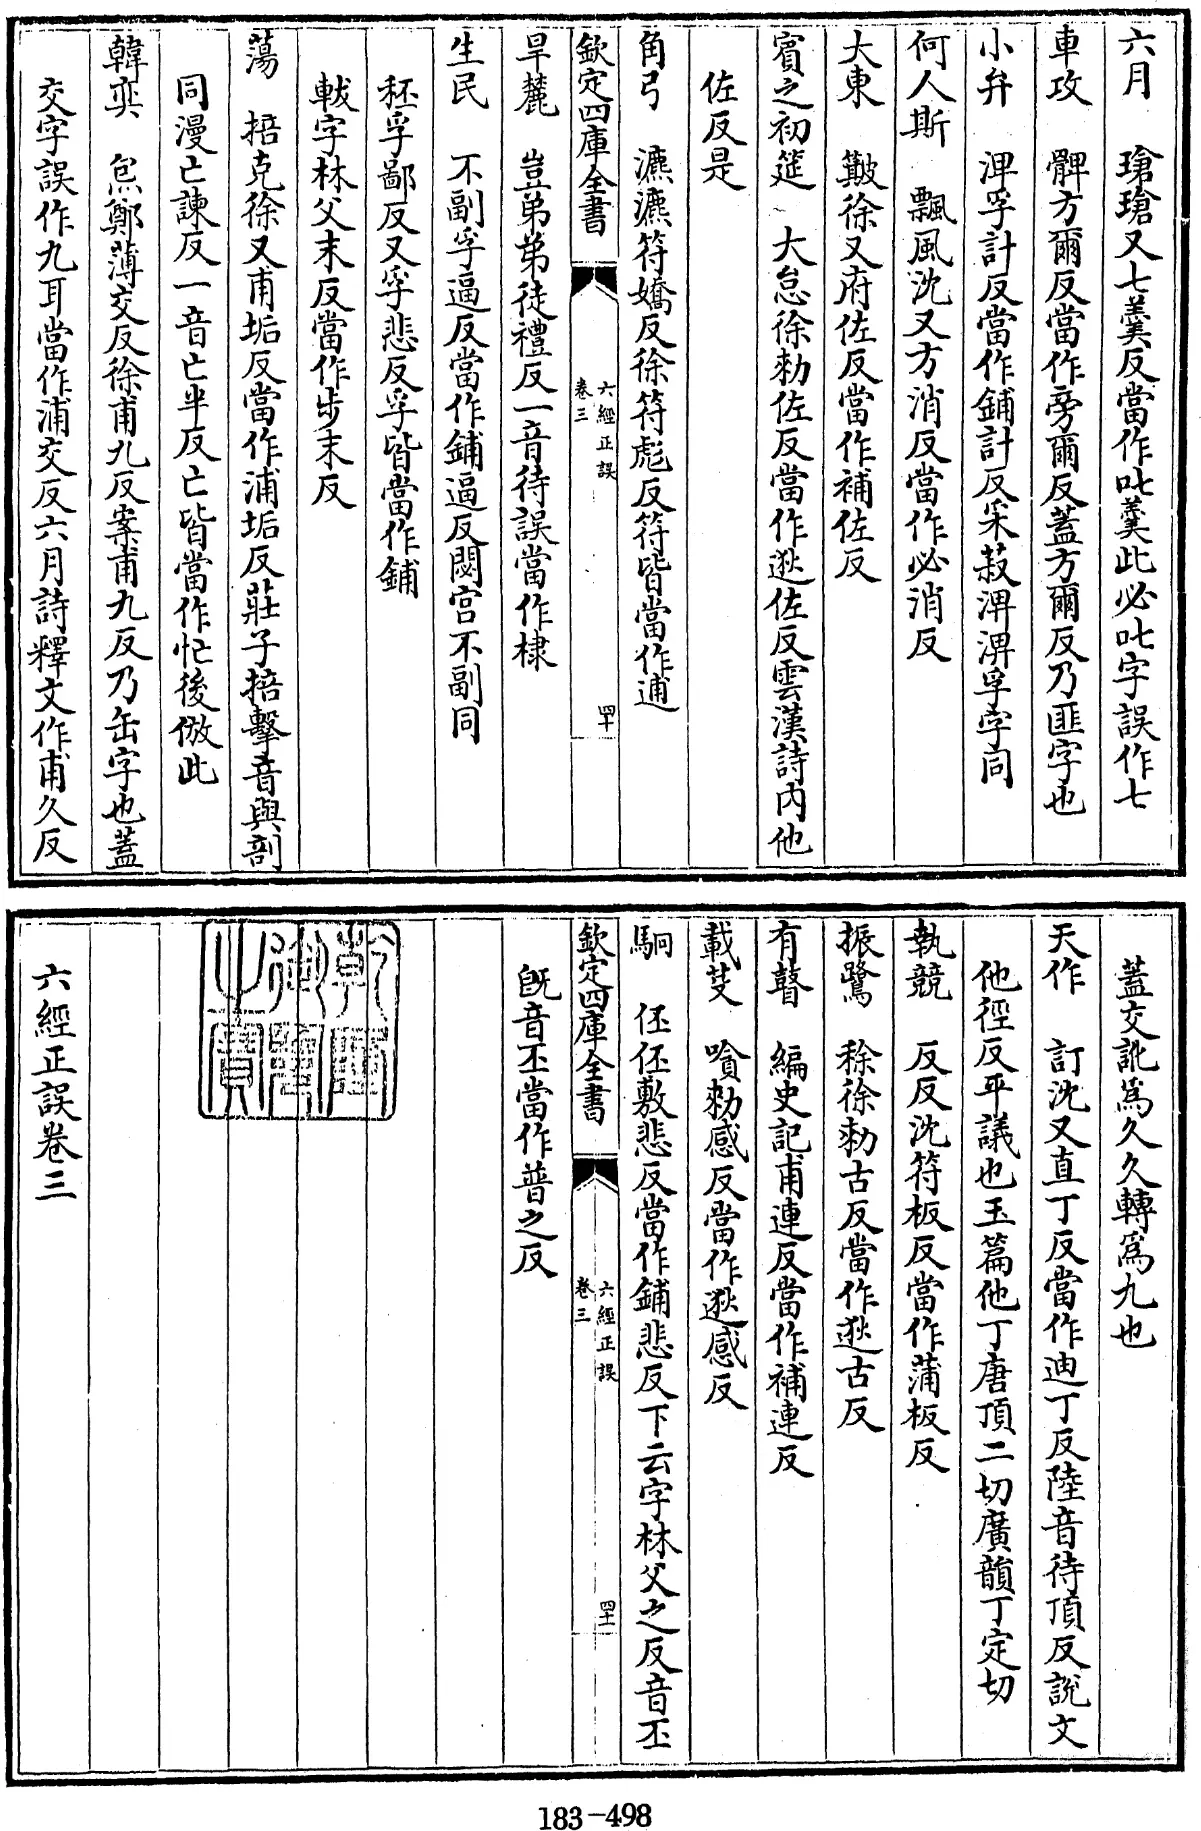 六月　瑲瑲又七羹反當作叱羹此必叱字誤作七
車攻　髀方爾反當作旁爾反蓋方爾反乃匪字也
小弁　淠孚計反當作鋪計反采菽淠淠孚字同
何人斯　飄風沈又方消反當作必消反
大東　簸徐又府佐反當作補佐反
賓之初筵　大怠徐勑佐反當作逖佐反雲漢詩内他
佐反是
角弓　瀌瀌符嬌反徐符彪反符皆當作逋
欽定四庫全書
六經正誤
卷三
四十
旱麓　豈弟弟徒禮反一音待誤當作棣
生民　不副孚逼反當作鋪逼反閟宮不副同
秠孚鄙反又孚悲反孚皆當作鋪
軷字林父末反當作步末反
蕩　掊克徐又甫垢反當作浦垢反莊子掊擊音與剖
同漫亡諫反一音亡半反亡皆當作忙後倣此
韓奕　炰鄭薄交反徐甫九反案甫九反乃缶字也蓋
交字誤作九耳當作浦交反六月詩釋文作甫久反
蓋交訛爲久久轉爲九也
天作　訂沈又直丁反當作迪丁反陸音待頂反説文
他徑反平議也玉篇他丁唐頂二切廣韻丁定切
執競　反反沈符板反當作蒲板反
振鷺　稌徐勑古反當作逖古反
有瞽　編史記甫連反當作補連反
載芟　嗿勑感反當作逖感反
駉　伾伾敷悲反當作鋪悲反下云字林父之反音丕
欽定四庫全書
六經正誤
卷三
四十一
既音丕當作普之反
乾隆御覽之寶
六經正誤卷三
183-498